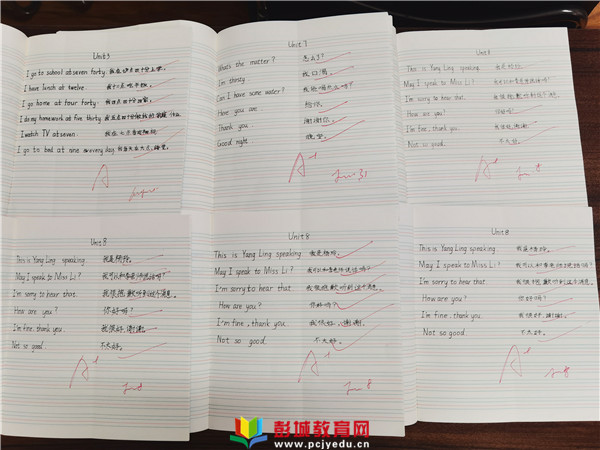 Unit 5
I go to school at seven forty. 我在七点四十分上学。
I have lunch at twelve. 我十二点吃午饭。
I go home at four forty. 我四点四十分回家。
I do my homework at five thirty.
I watch TV at seven.
I go to bed at nine every day.
A+
Unit 7
What's the matter? 怎么了?
I'm thirsty. 我口渴。
Can I have some water? 我能喝点水吗?
Here you are. 给你。
Thank you. 谢谢你。
Good night. 晚安。
A+
Unit 8
This is Yang Ling speaking. 我是杨玲。
May I speak to Miss Li?
I'm sorry to hear that.
How are you? 你好吗?
I'm fine, thank you. 我很好,谢谢。
Not so good. 不太好。
A+
Unit 8
This is Yang Ling speaking. 我是杨玲。
May I speak to Miss Li? 我可以和李老师说话吗?
I'm sorry to hear that. 我很抱歉听到这个消息。
How are you? 你好吗?
I'm fine, thank you. 我很好,谢谢。
Not so good. 不太好。
A+
Unit 8
This is Yang Ling speaking. 我是杨玲。
May I speak to Miss Li? 我可以和李老师说话吗?
I'm sorry to hear that. 我很抱歉听到这个消息。
How are you? 你好吗?
I'm fine, thank you. 我很好,谢谢。
Not so good. 不太好。
A+
Unit 8
This is Yang Ling speaking. 我是杨玲。
May I speak to Miss Li? 我可以和李老师说话吗?
I'm sorry to hear that. 我很抱歉听到这个消息。
How are you? 你好吗?
I'm fine, thank you. 我很好,谢谢。
Not so good. 不太好。
A+
彭城教育网
www.pcjyedu.cn